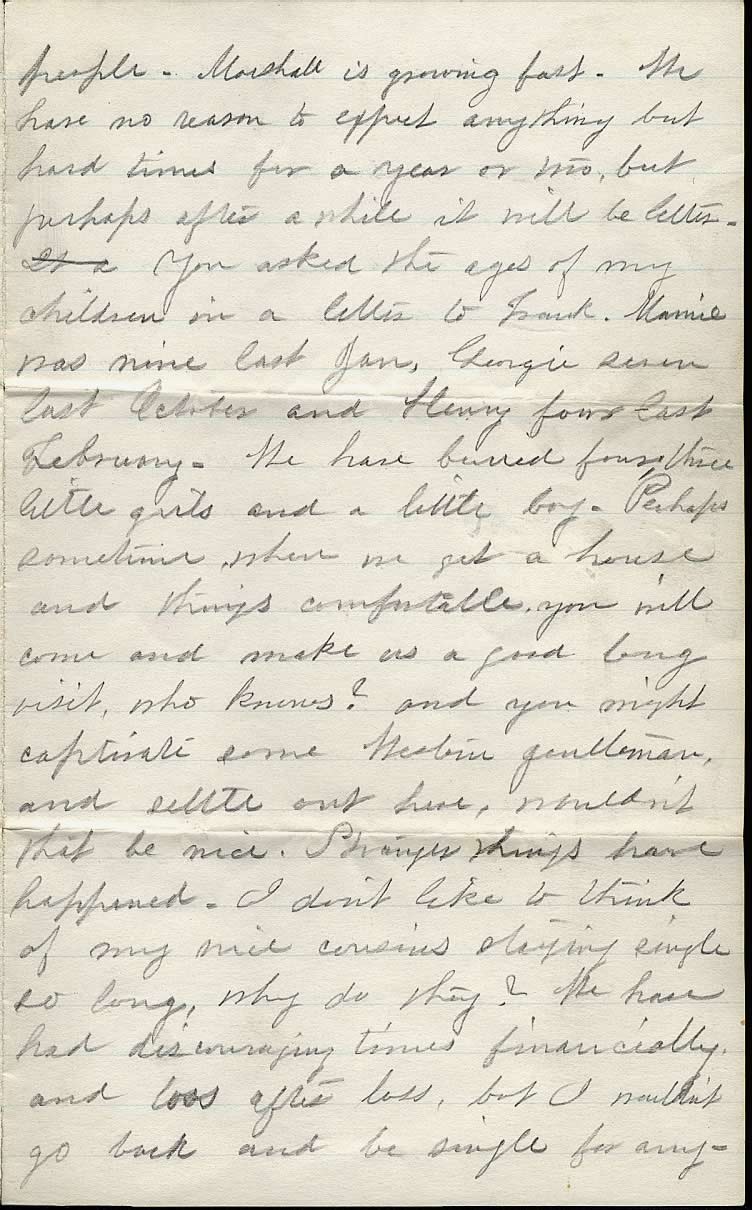 people - Marshall is growing fast - We
have no reason to expect anything but
hard times for a year or two, but
perhaps after a while it will be better -
It a You asked the ages of my
children in a letter to Frank. Mamie
was nine last Jan, Georgie seven
last October and Henry four last
February - We have buried four, three
little girls and a little boy - Perhaps
sometime, when we get a house
and things comfortable, you will
come and make us a good long
visit, who knows? and you might
captivate some Western gentleman,
and settle out here, wouldn't
that be nice. Stranger things have
happened - I don't like to think
of my nice cousins staying single
so long, why do they? We have
had discouraging times financially,
and loss after loss, but I wouldn't
go back and be single for any-